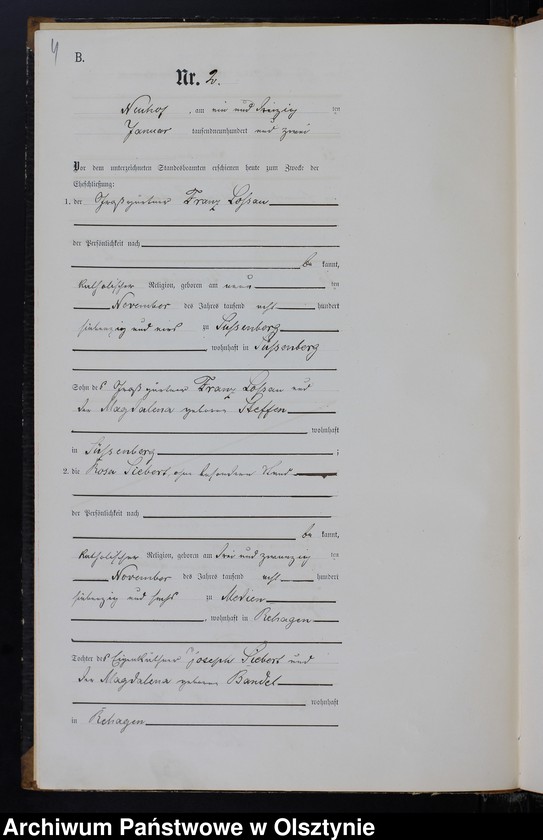 4
B.
Nr. 2.
Neuhof, am ein und dreizig ten
Januar tausendneunhundert und zwei
Vor dem unterzeichneten Standesbeamten erschienen heute zum Zwecke der
Eheschließung:
1. der Franz Lossau
der Persönlichkeit nach
be kannt,
katholischer Religion, geboren am ten
November des Jahres tausend acht hundert
siebenzig und zu Süssenberg
, wohnhaft in Süssenberg
Sohn des Franz Lossau und
der Magdalena geborene Steffen
wohnhaft
in Süssenberg ;
2. die Rosa Siebert, ohne besonderen Stand
der Persönlichkeit nach
be kannt,
katholischer Religion, geboren am drei und zwanzig ten
November des Jahres tausend acht hundert
siebenzig und sechs zu Medien
, wohnhaft in Rehagen
Tochter des Eigenkäthner Joseph Siebert und
der Magdalena geborene Bandel
wohnhaft
in Rehagen
Archiwum Państwowe w Olsztynie